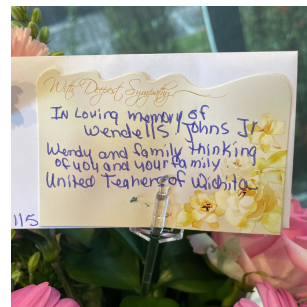 With Deepest Sympathy
In Loving memory of
Wendell S Johns Jr
Wendy and family thinking
of you and your family
United Teahers of Wichita
115